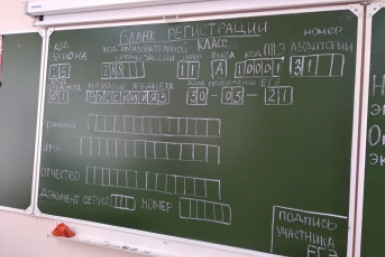 БЛАНК РЕГИСТРАЦИИ
КОД РЕГИОНА КОД ОБРАЗОВАТЕЛЬНОЙ ОРГАНИЗАЦИИ КЛАСС НОМЕР БУКВА КОД ППЭ НОМЕР АУДИТОРИИ
11 А 10001
КОД ПРЕДМЕТА НАЗВАНИЕ ПРЕДМЕТА ДАТА ПРОВЕДЕНИЯ ЕГЭ
01 30-03-21
ФАМИЛИЯ
ИМЯ
ОТЧЕСТВО
ДОКУМЕНТ СЕРИЯ НОМЕР
ПОДПИСЬ
УЧАСТНИКА
ЕГЭ